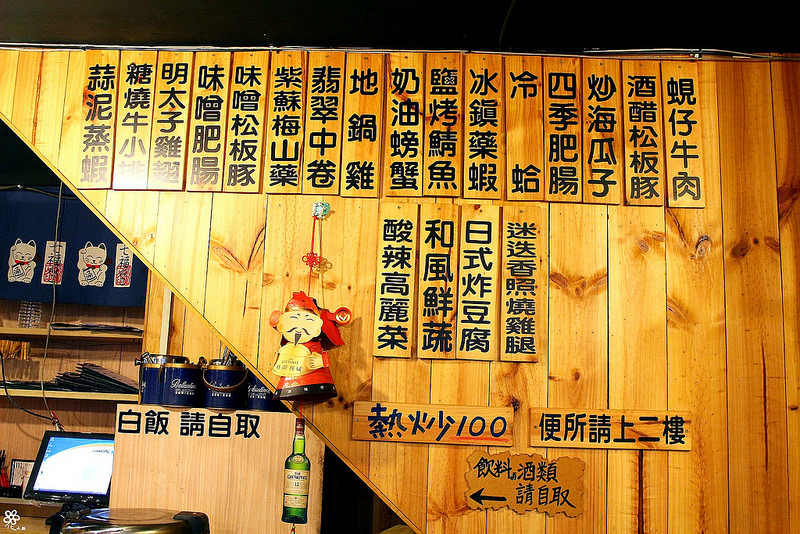 蜆仔牛肉
酒醋松板豚
炒海瓜子
四季肥腸
冷蛤
冰鎮藥蝦
鹽烤鯖魚
奶油螃蟹
地鍋雞
翡翠中卷
紫蘇梅山藥
味噌松板豚
味噌肥腸
明太子雞翅
糖燒牛小排
蒜泥蒸蝦
迷迭香照燒雞腿
日式炸豆腐
和風鮮蔬
酸辣高麗菜
熱炒100
便所請上二樓
飲料及酒類
請自取
白飯 請自取
七福
七福
Ballantine's
12